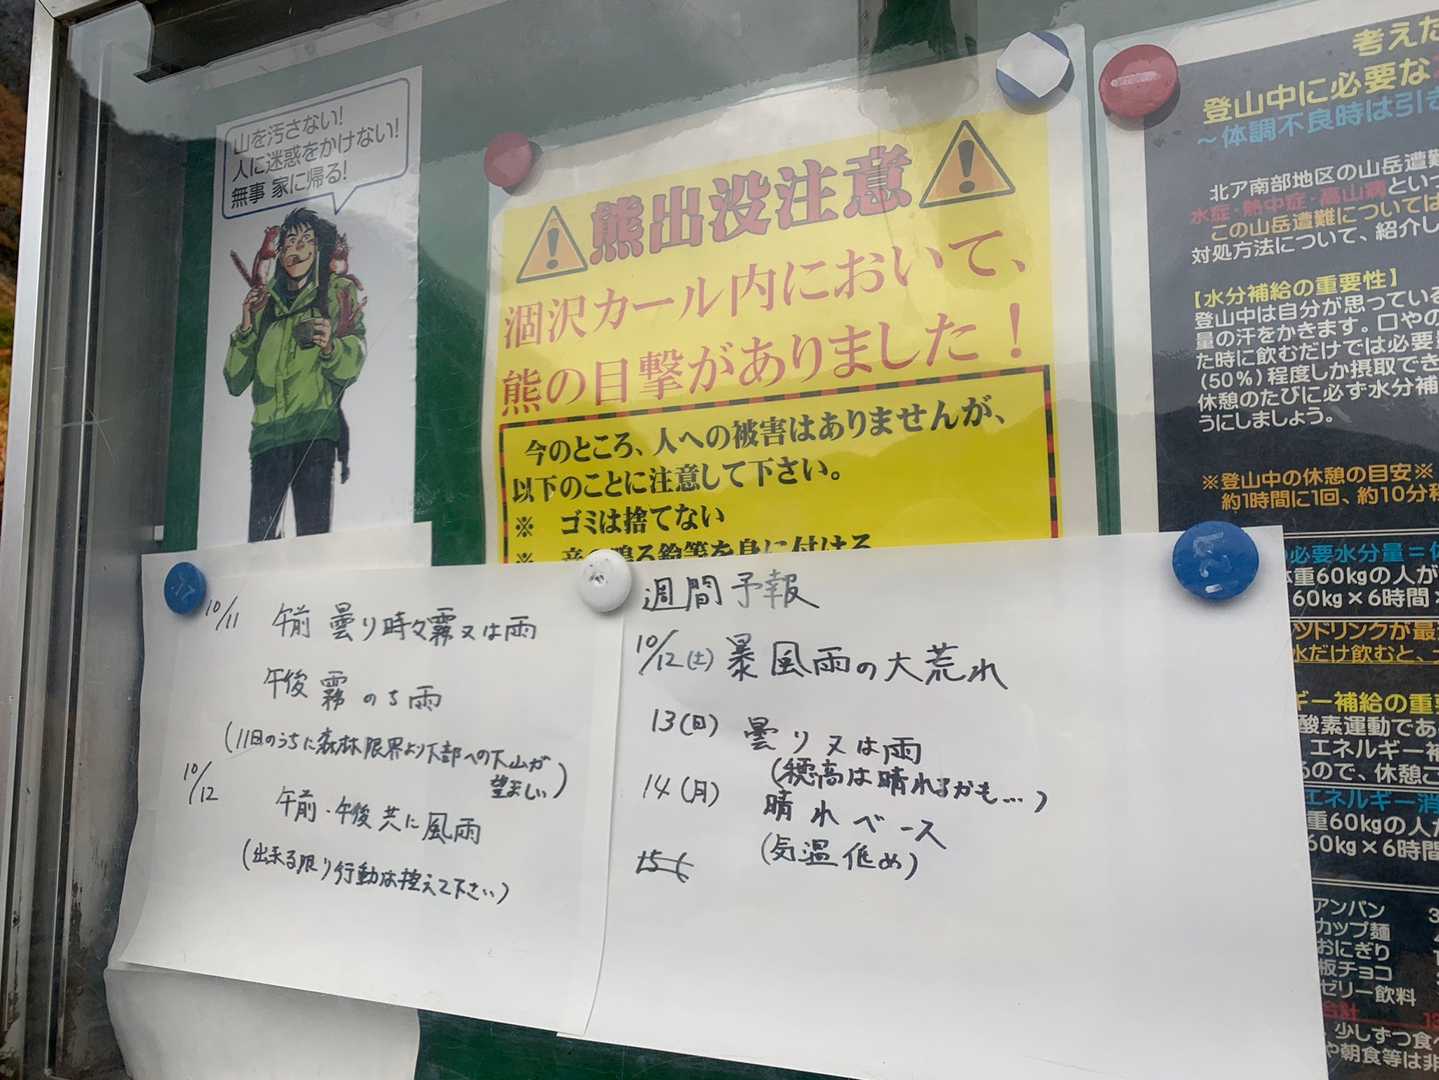 山を汚さない!
人に迷惑をかけない!
無事 家に帰る!
熊出没注意
涸沢カール内において、
熊の目撃がありました!
今のところ、人への被害はありませんが、
以下のことに注意して下さい。
※ ゴミは捨てない
※ 音の鳴る鈴等を身に付ける
考えた
登山中に必要な
~体調不良時は引き
北ア南部地区の山岳遭難
水症・熱中症・高山病といっ
この山岳遭難については
対処方法について、紹介し
【水分補給の重要性】
登山中は自分が思っている
量の汗をかきます。口やの
た時に飲むだけでは必要
(50%)程度しか摂取でき
休憩のたびに必ず水分補
うにしましょう。
※登山中の休憩の目安※
約1時間に1回、約10分程
必要水分量=体
体重60kgの人が
60kg×6時間×
ツドリンクが最
水だけ飲むと、
ギー補給の重要
酸素運動であ
エネルギー補
るので、休憩ご
エネルギー消
重60kgの人が
60kg×6時間
アンパン 3
カップ麺
おにぎり 1
板チョコ
ゼリー飲料
合計 13
少しずつ食べ
や朝食等は非
10/11 午前 曇り時々霧又は雨
午後 霧のち雨
(11日のうちに森林限界より下部への下山が
望ましい)
10/12 午前・午後共に風雨
(出来る限り行動は控えて下さい)
週間予報
10/12(土) 暴風雨の大荒れ
13(日) 曇り又は雨
(穂高は晴れるかも…)
14(月) 晴れベース
(気温低め)